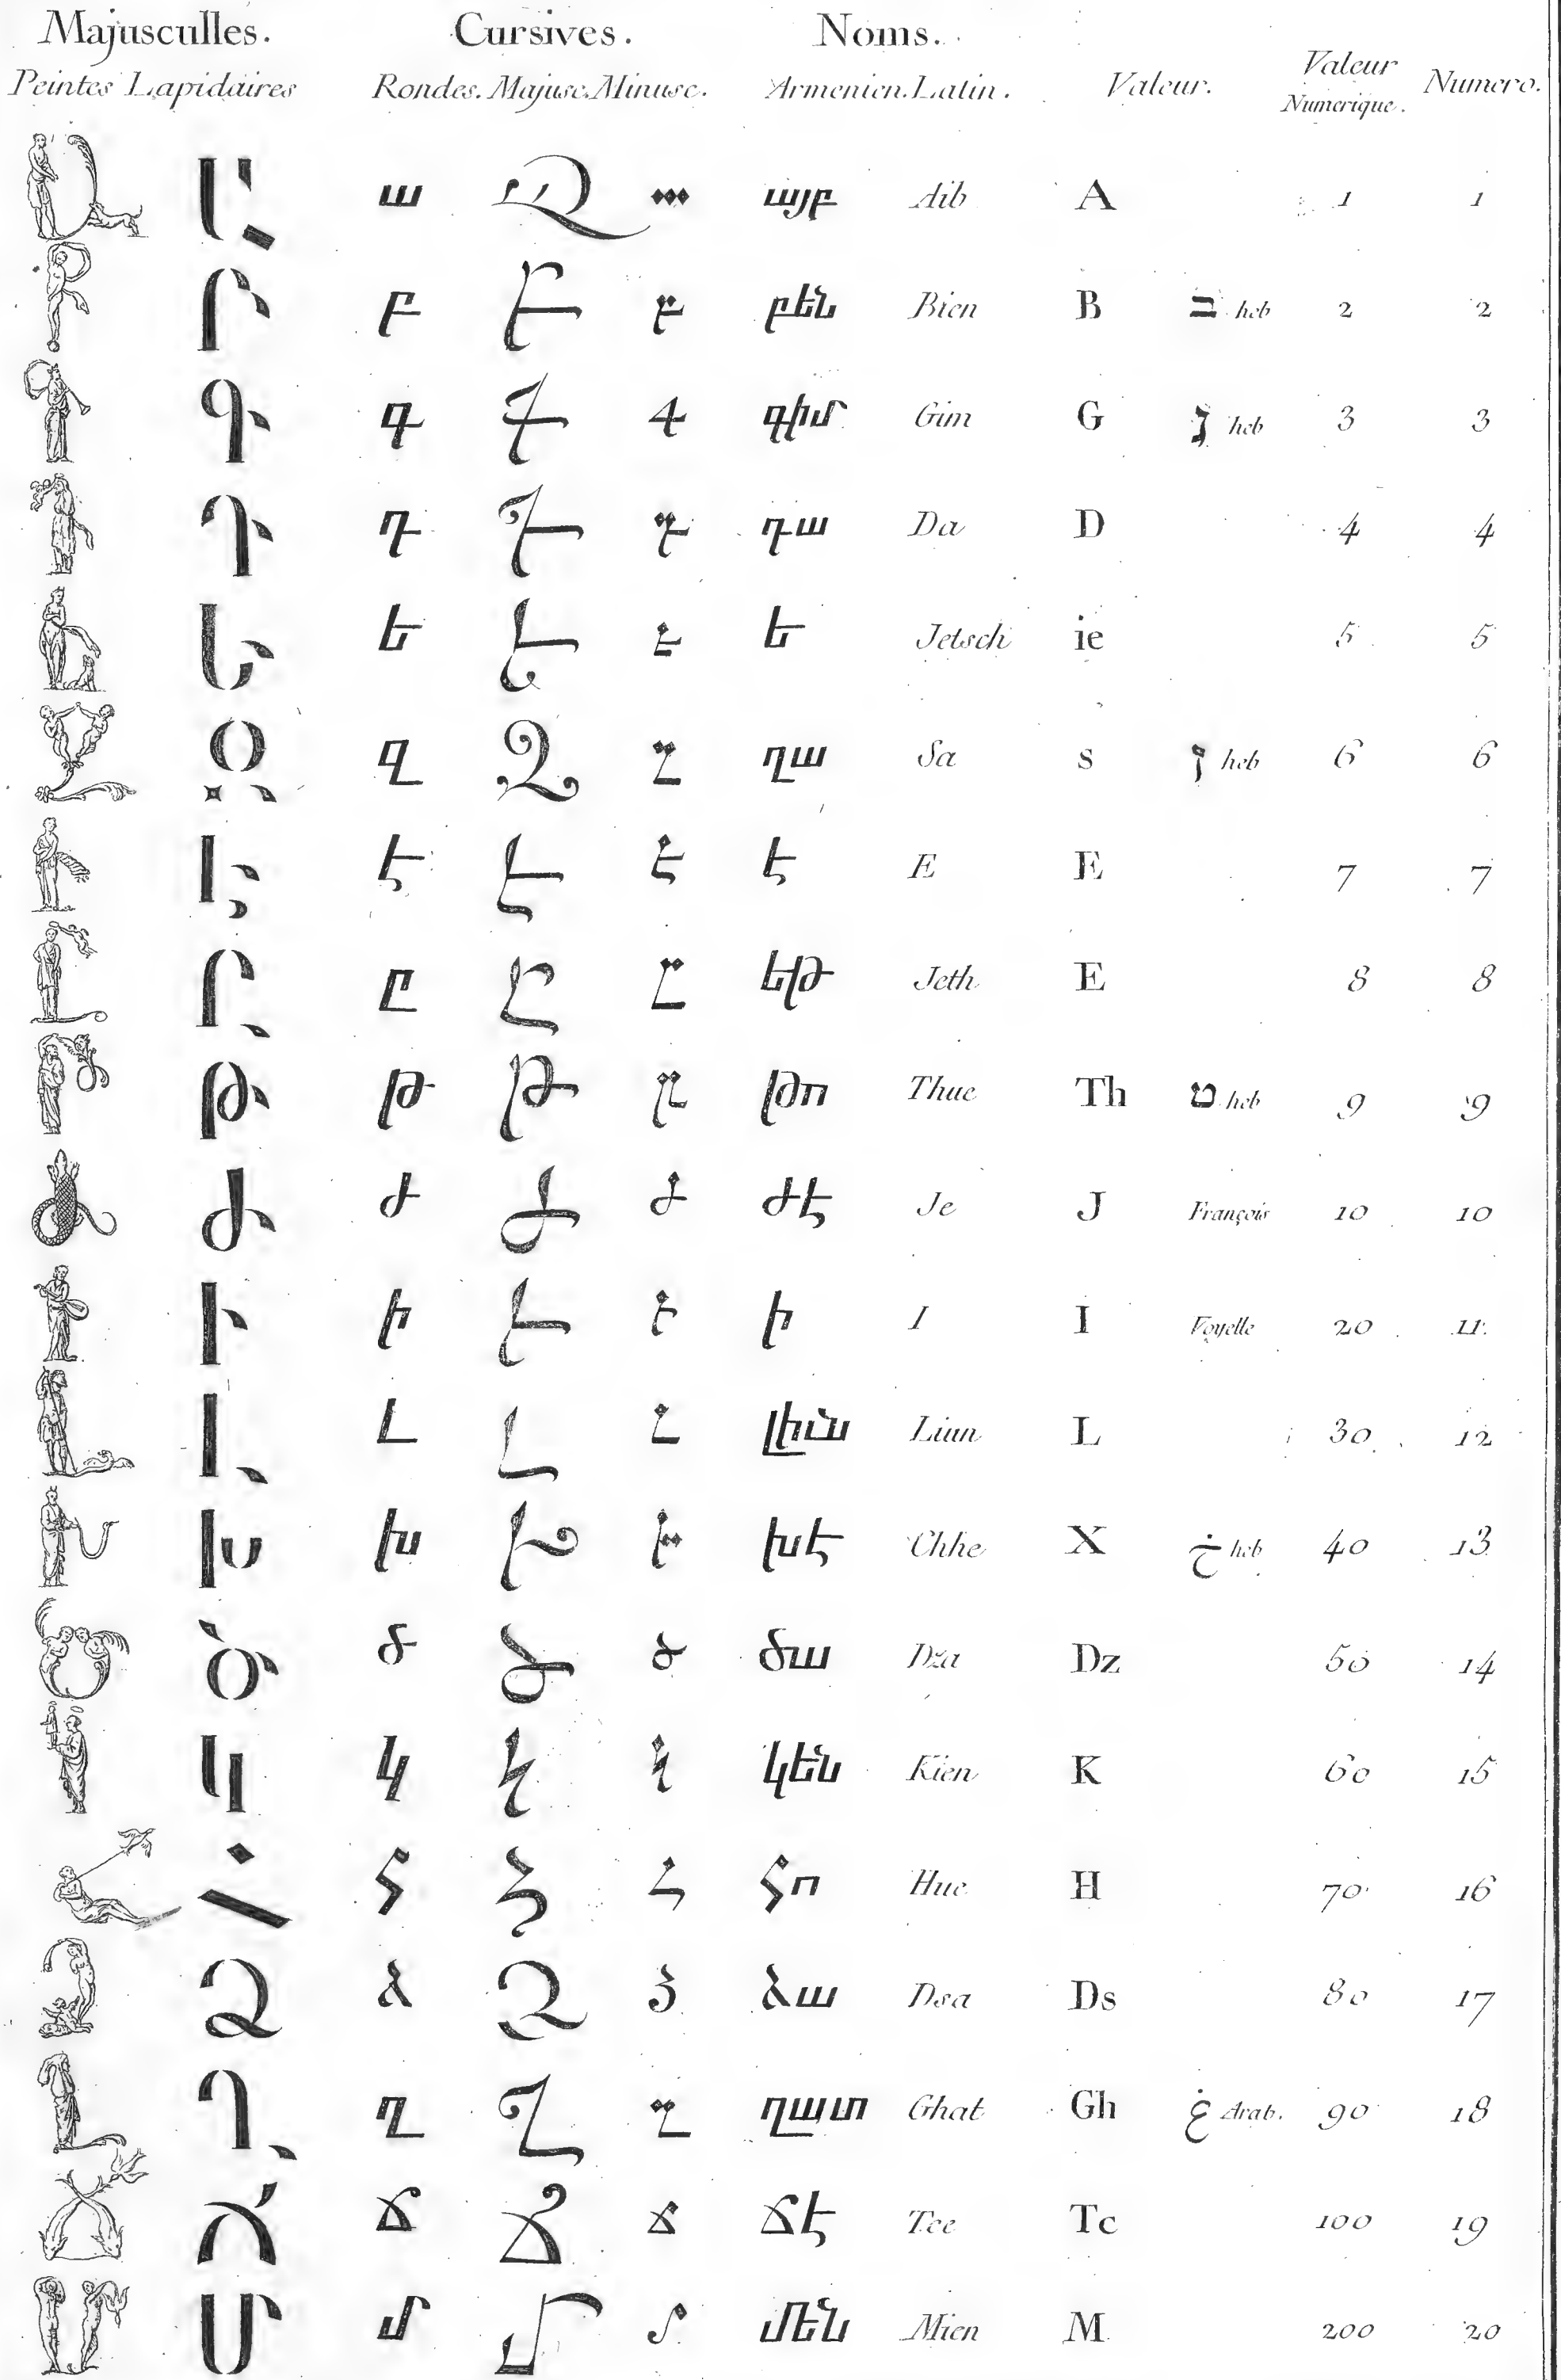 Majusculles. Cursives. Noms.
Peintes Lapidaires Rondes. Majusc. Minusc. Armenien. Latin. Valeur. Valeur Numerique. Numero.
Ա ա Ա ա այբ Aib A 1 1
Բ բ Բ բ բեն Bien B ב heb 2 2
Գ գ Գ գ գիմ Gim G נ heb 3 3
Դ դ Դ դ դա Da D 4 4
Ե ե Ե ե ե Jetsch ie 5 5
Զ զ Զ զ ղա Sa s ז heb 6 6
Է է Է է է E E 7 7
Ը ը Ը ը եթ Jeth E 8 8
Թ թ Թ թ թո Thue Th ט heb 9 9
Ժ ժ Ժ ժ ժէ Je J François 10 10
Ի ի Ի ի ի I I Voyelle 20 11
Լ լ Լ լ լիւն Liun L 30 12
Խ խ Խ խ խէ Chhe X خ heb 40 13
Ծ ծ Ծ ծ ծա Dza Dz 50 14
Կ կ Կ կ կեն Kien K 60 15
Հ հ Հ հ հո Hue H 70 16
Ձ ձ Ձ ձ ձա Dsa Ds 80 17
Ղ ղ Ղ ղ ղատ Ghat Gh غ Arab. 90 18
Ճ ճ Ճ ճ ճէ Tce Tc 100 19
Մ մ Մ մ մեն Mien M 200 20